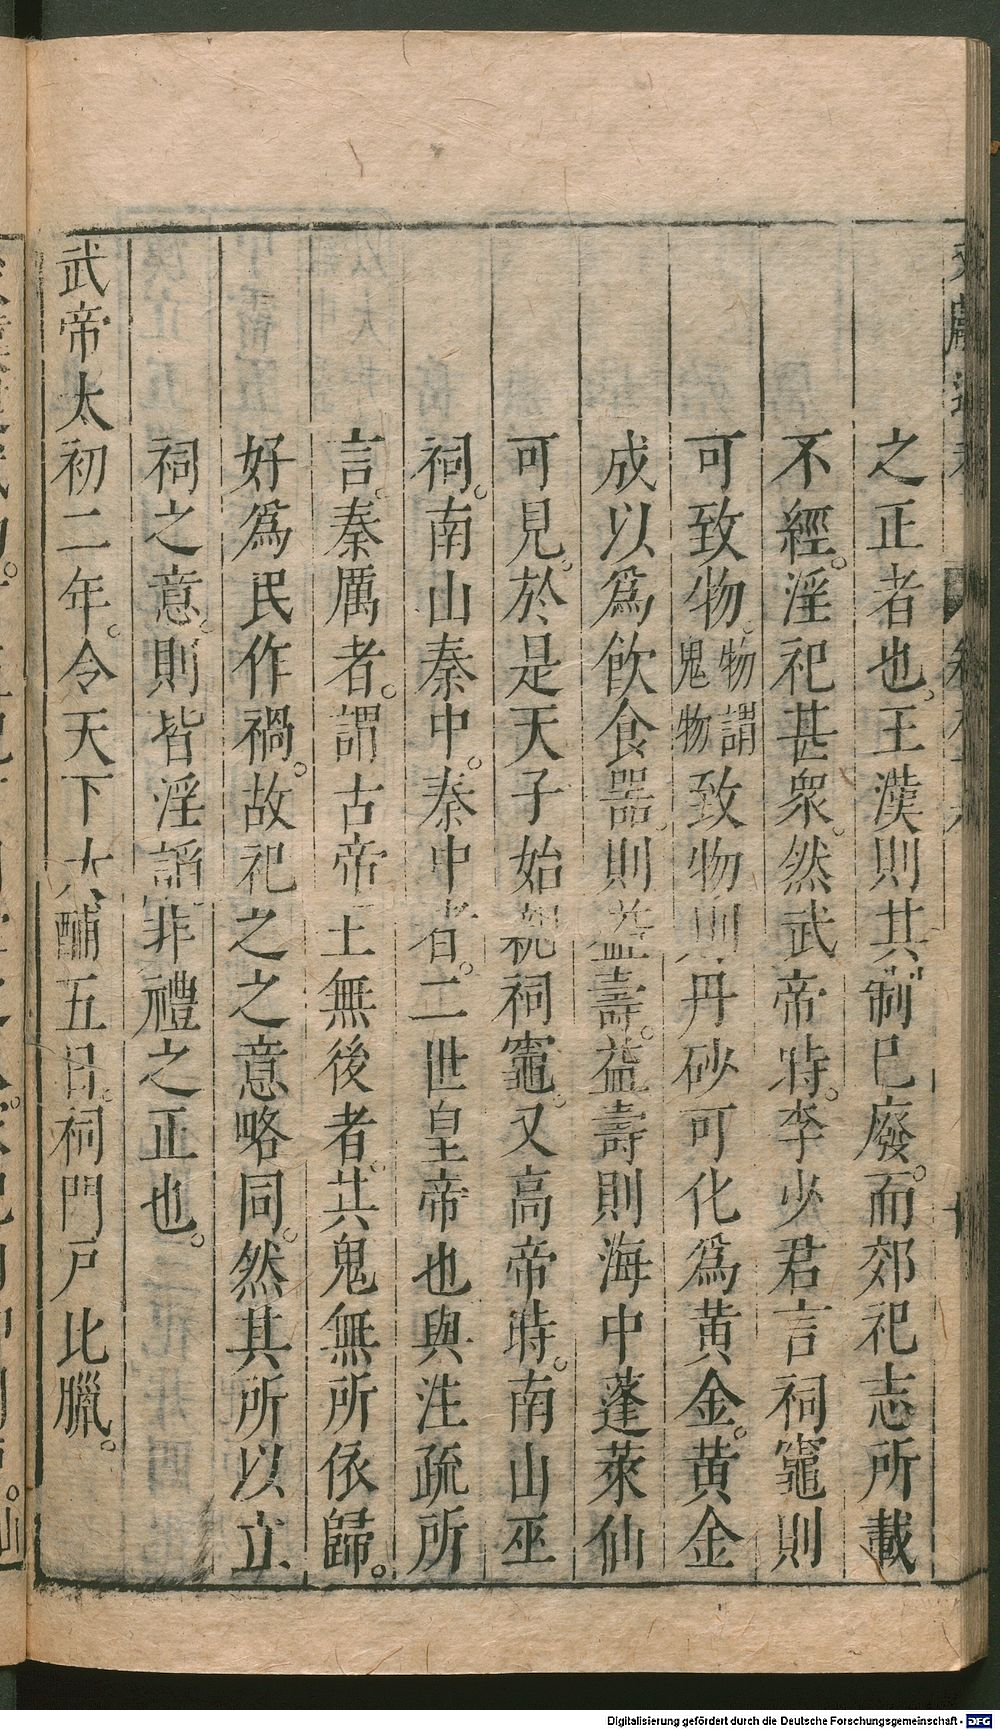 之正者也。王漢則其制已廢。而郊祀志所載
不經。淫祀甚衆。然武帝時。李少君言祠竈則
可致物。物謂鬼物致物則丹砂可化爲黄金。黄金
成以爲飲食器。則益壽。益壽則海中蓬萊仙
可見。於是天子始親祠竈。又高帝時。南山巫
祠。南山秦中。秦中者。二世皇帝也與注疏所
言。秦厲者。謂古帝王無後者。共鬼無所依歸。
好爲民作禍。故祀之之意略同。然其所以立
祠之意。則皆淫諂非禮之正也。
武帝太初二年。令天下大酺五日。祠門戸比臘。
Digitalisierung gefördert durch die Deutsche Forschungsgemeinschaft - DFG